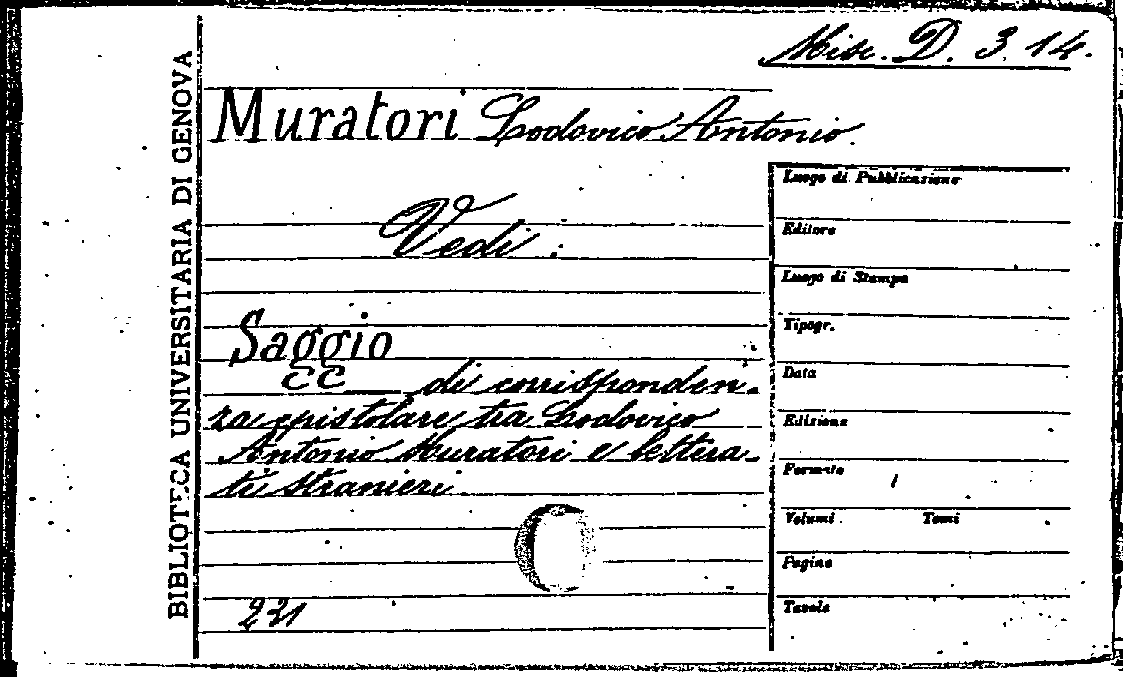 Misc. D. 3. 14.
BIBLIOTECA UNIVERSITARIA DI GENOVA
Muratori Lodovico Antonio.
Vedi:
Saggio
di corrisponden-
za epistolare tra Lodovico
Antonio Muratori e lettera-
ti stranieri
221
Luogo di Pubblicazione
Editore
Luogo di Stampa
Tipogr.
Data
Edizione
Formato
Volumi Tomi
Pagine
Tavole